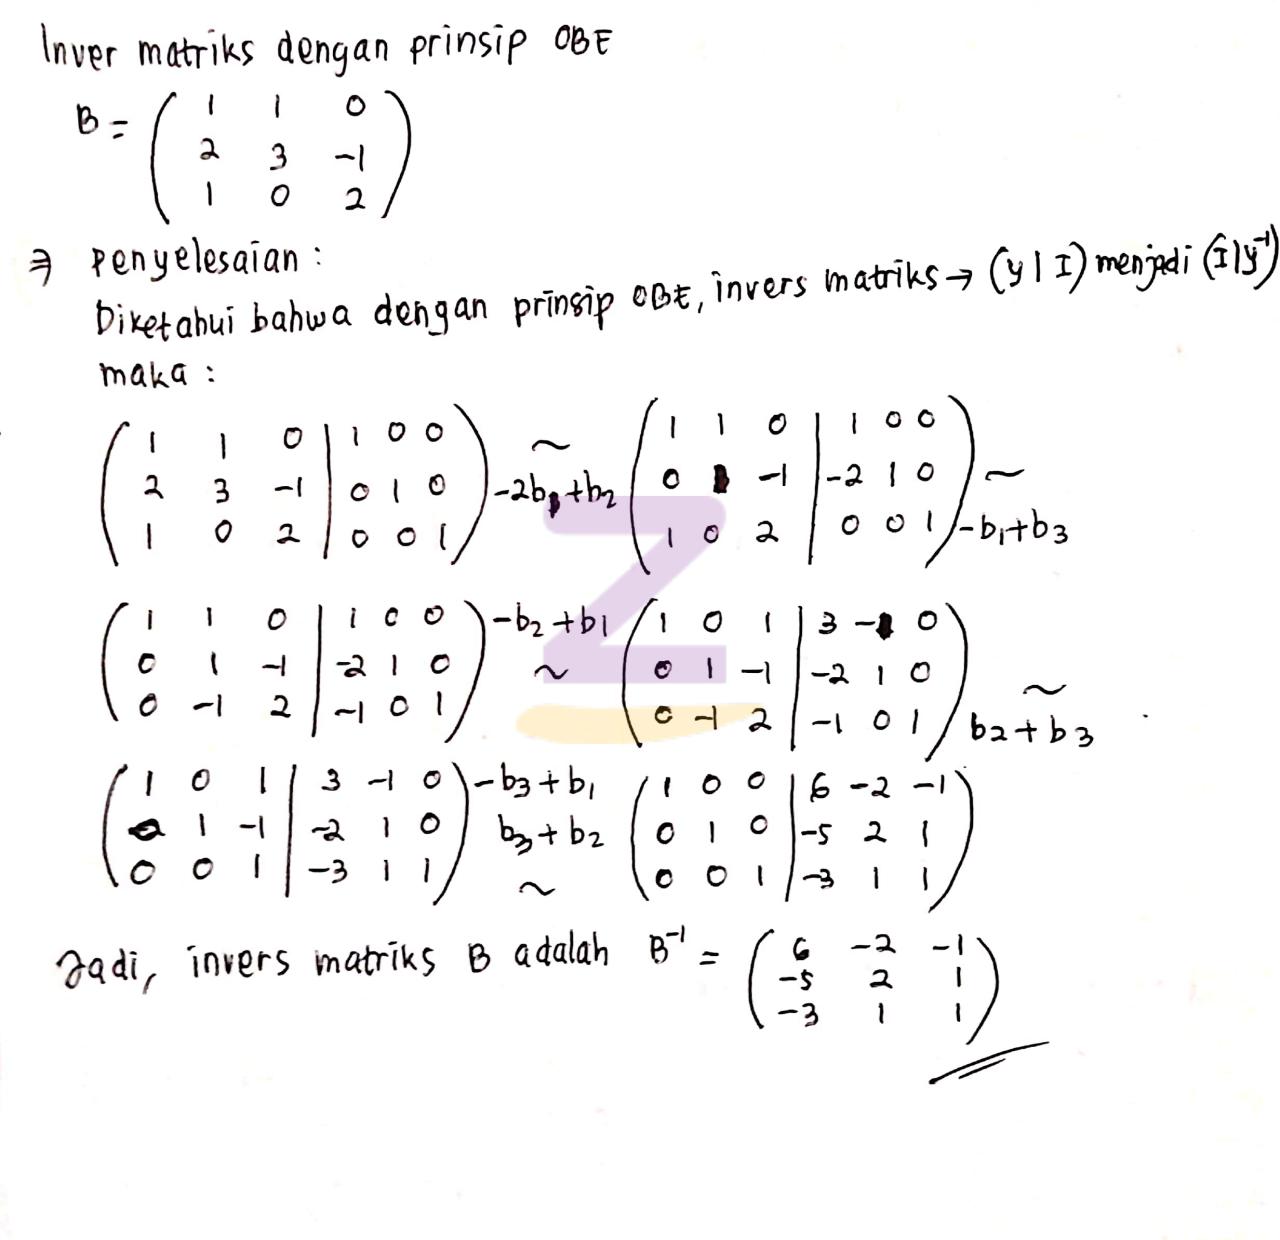 Inver matriks dengan prinsip OBE
B = ( 1 1 0
2 3 -1
1 0 2 )
⇒ Penyelesaian :
Diketahui bahwa dengan prinsip OBE, invers matriks → (y | I) menjadi (I | y⁻¹)
maka :
( 1 1 0 | 1 0 0 ) ~ ( 1 1 0 | 1 0 0 )
( 2 3 -1 | 0 1 0 ) -2b₁+b₂ ( 0 1 -1 | -2 1 0 ) ~
( 1 0 2 | 0 0 1 ) ( 1 0 2 | 0 0 1 ) -b₁+b₃
( 1 1 0 | 1 0 0 ) -b₂+b₁ ( 1 0 1 | 3 -1 0 )
( 0 1 -1 | -2 1 0 ) ~ ( 0 1 -1 | -2 1 0 ) ~
( 0 -1 2 | -1 0 1 ) ( 0 -1 2 | -1 0 1 ) b₂+b₃
( 1 0 1 | 3 -1 0 ) -b₃+b₁ ( 1 0 0 | 6 -2 -1 )
( 0 1 -1 | -2 1 0 ) b₃+b₂ ( 0 1 0 | -5 2 1 )
( 0 0 1 | -3 1 1 ) ~ ( 0 0 1 | -3 1 1 )
Jadi, invers matriks B adalah B⁻¹ = ( 6 -2 -1
-5 2 1
-3 1 1 )
Z